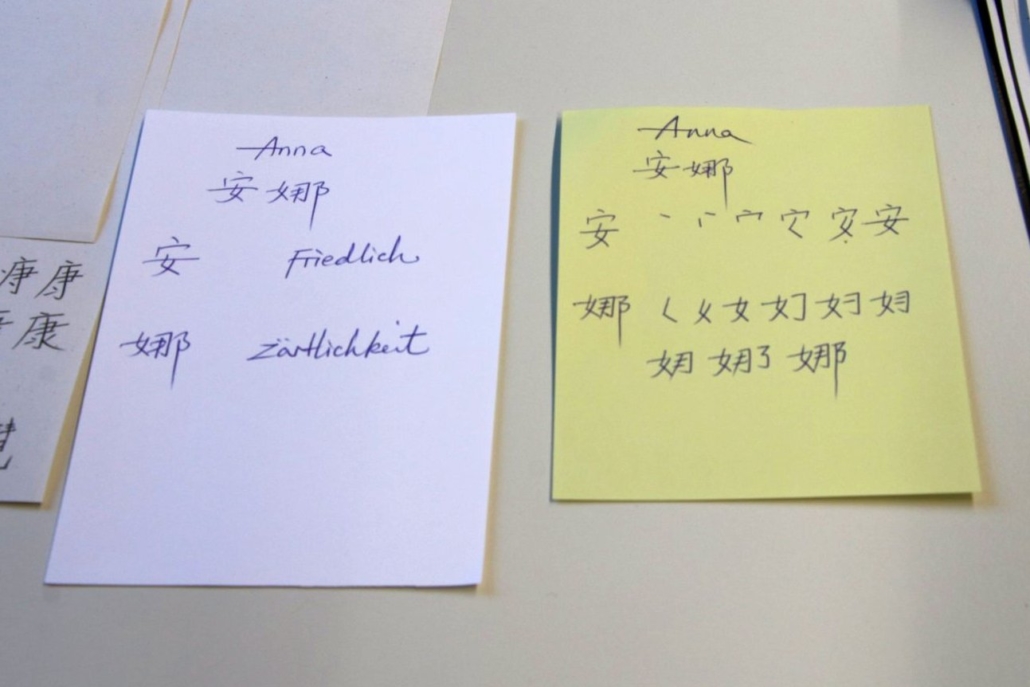 康康
康
Anna
安娜
安 Friedlich
娜 Zärtlichkeit
Anna
安娜
安 丶 丷 宀 安
娜 く 女 女 娜
娜